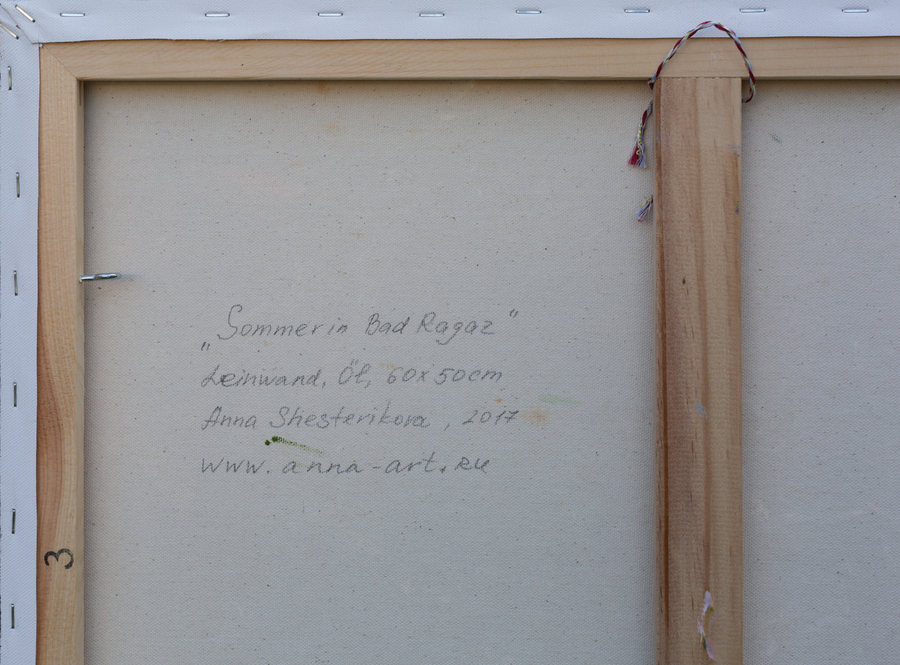 „Sommer in Bad Ragaz“
Leinwand, Öl, 60x50cm
Anna Shesterikova, 2017
www.anna-art.ru
3